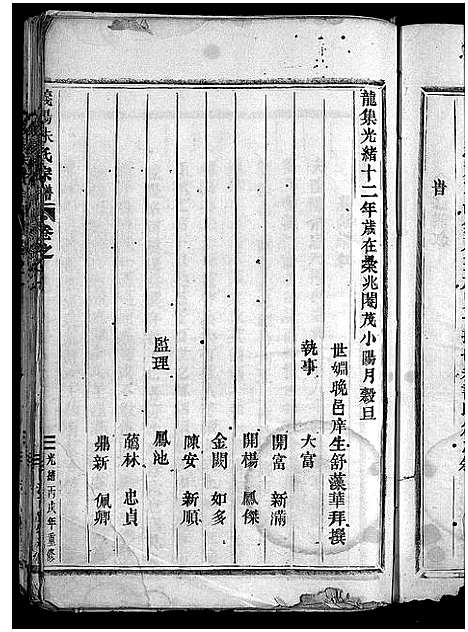 龍集光緒十二年歲在柔兆閹茂小陽月穀旦
世姻晚邑庠生舒藻華拜撰
執事 大富
開富 新滿
開楊 鳳傑
金闕 如多
陳安 新順
監理 鳳池
蔭林 忠貞
鼎新 佩卿
義陽朱氏宗譜 卷之
光緒丙戌年重修